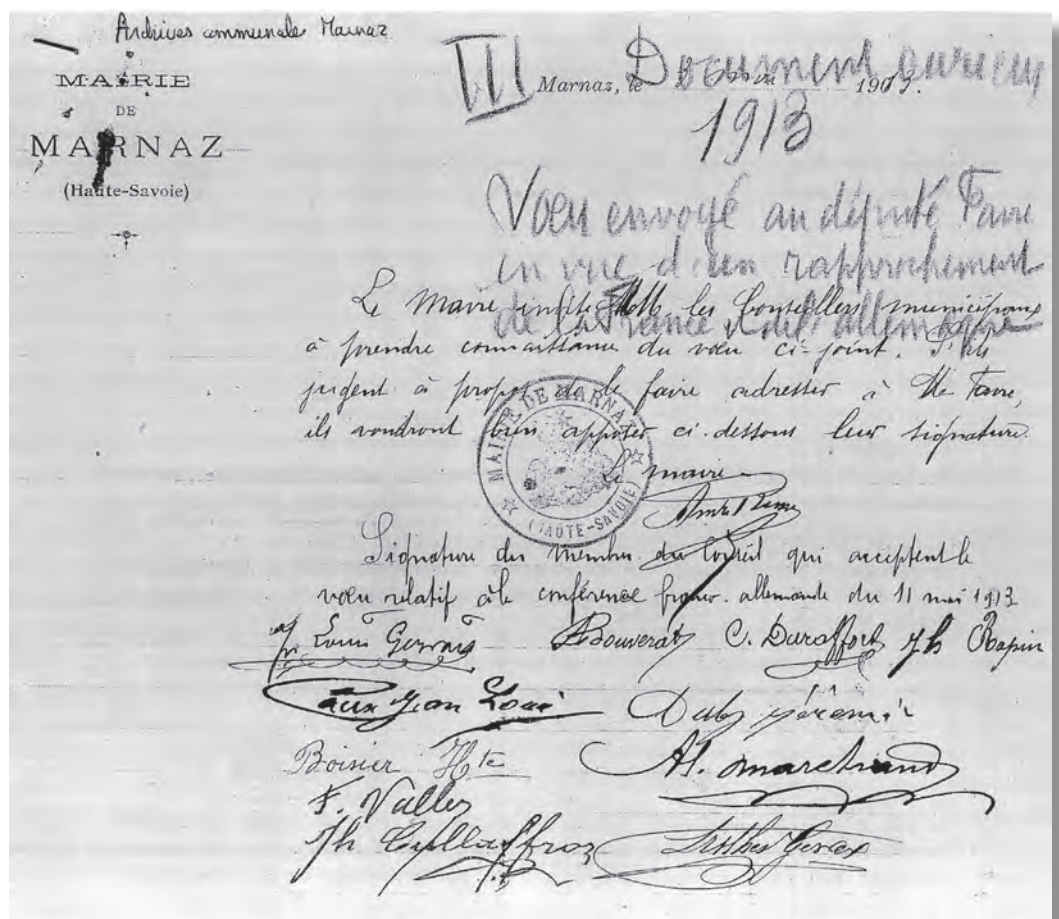 Archives communale Marnaz
MAIRIE
DE
MARNAZ
(Haute-Savoie)
III
Marnaz, le 190
Document curieux
1913
Vœu envoyé au député Favre
en vue d'un rapprochement
de la France et de l'allemagne
Le Maire invite MM. les Conseillers municipaux
à prendre connaissance du vœu ci-joint. S'ils
jugent à propos de le faire adresser à Mr Favre,
ils voudront bien apposer ci-dessous leur signature.
Le maire
MAIRIE DE MARNAZ
(HAUTE-SAVOIE)
Signature des membres du Conseil qui acceptent le
vœu relatif à la conférence franco-allemande du 11 mai 1913
Louis Gervais Bouverat C. Duraffort Jh Rapin
Jean Louis
Boisier Hte Al. Marchand
F. Vallet
Jh